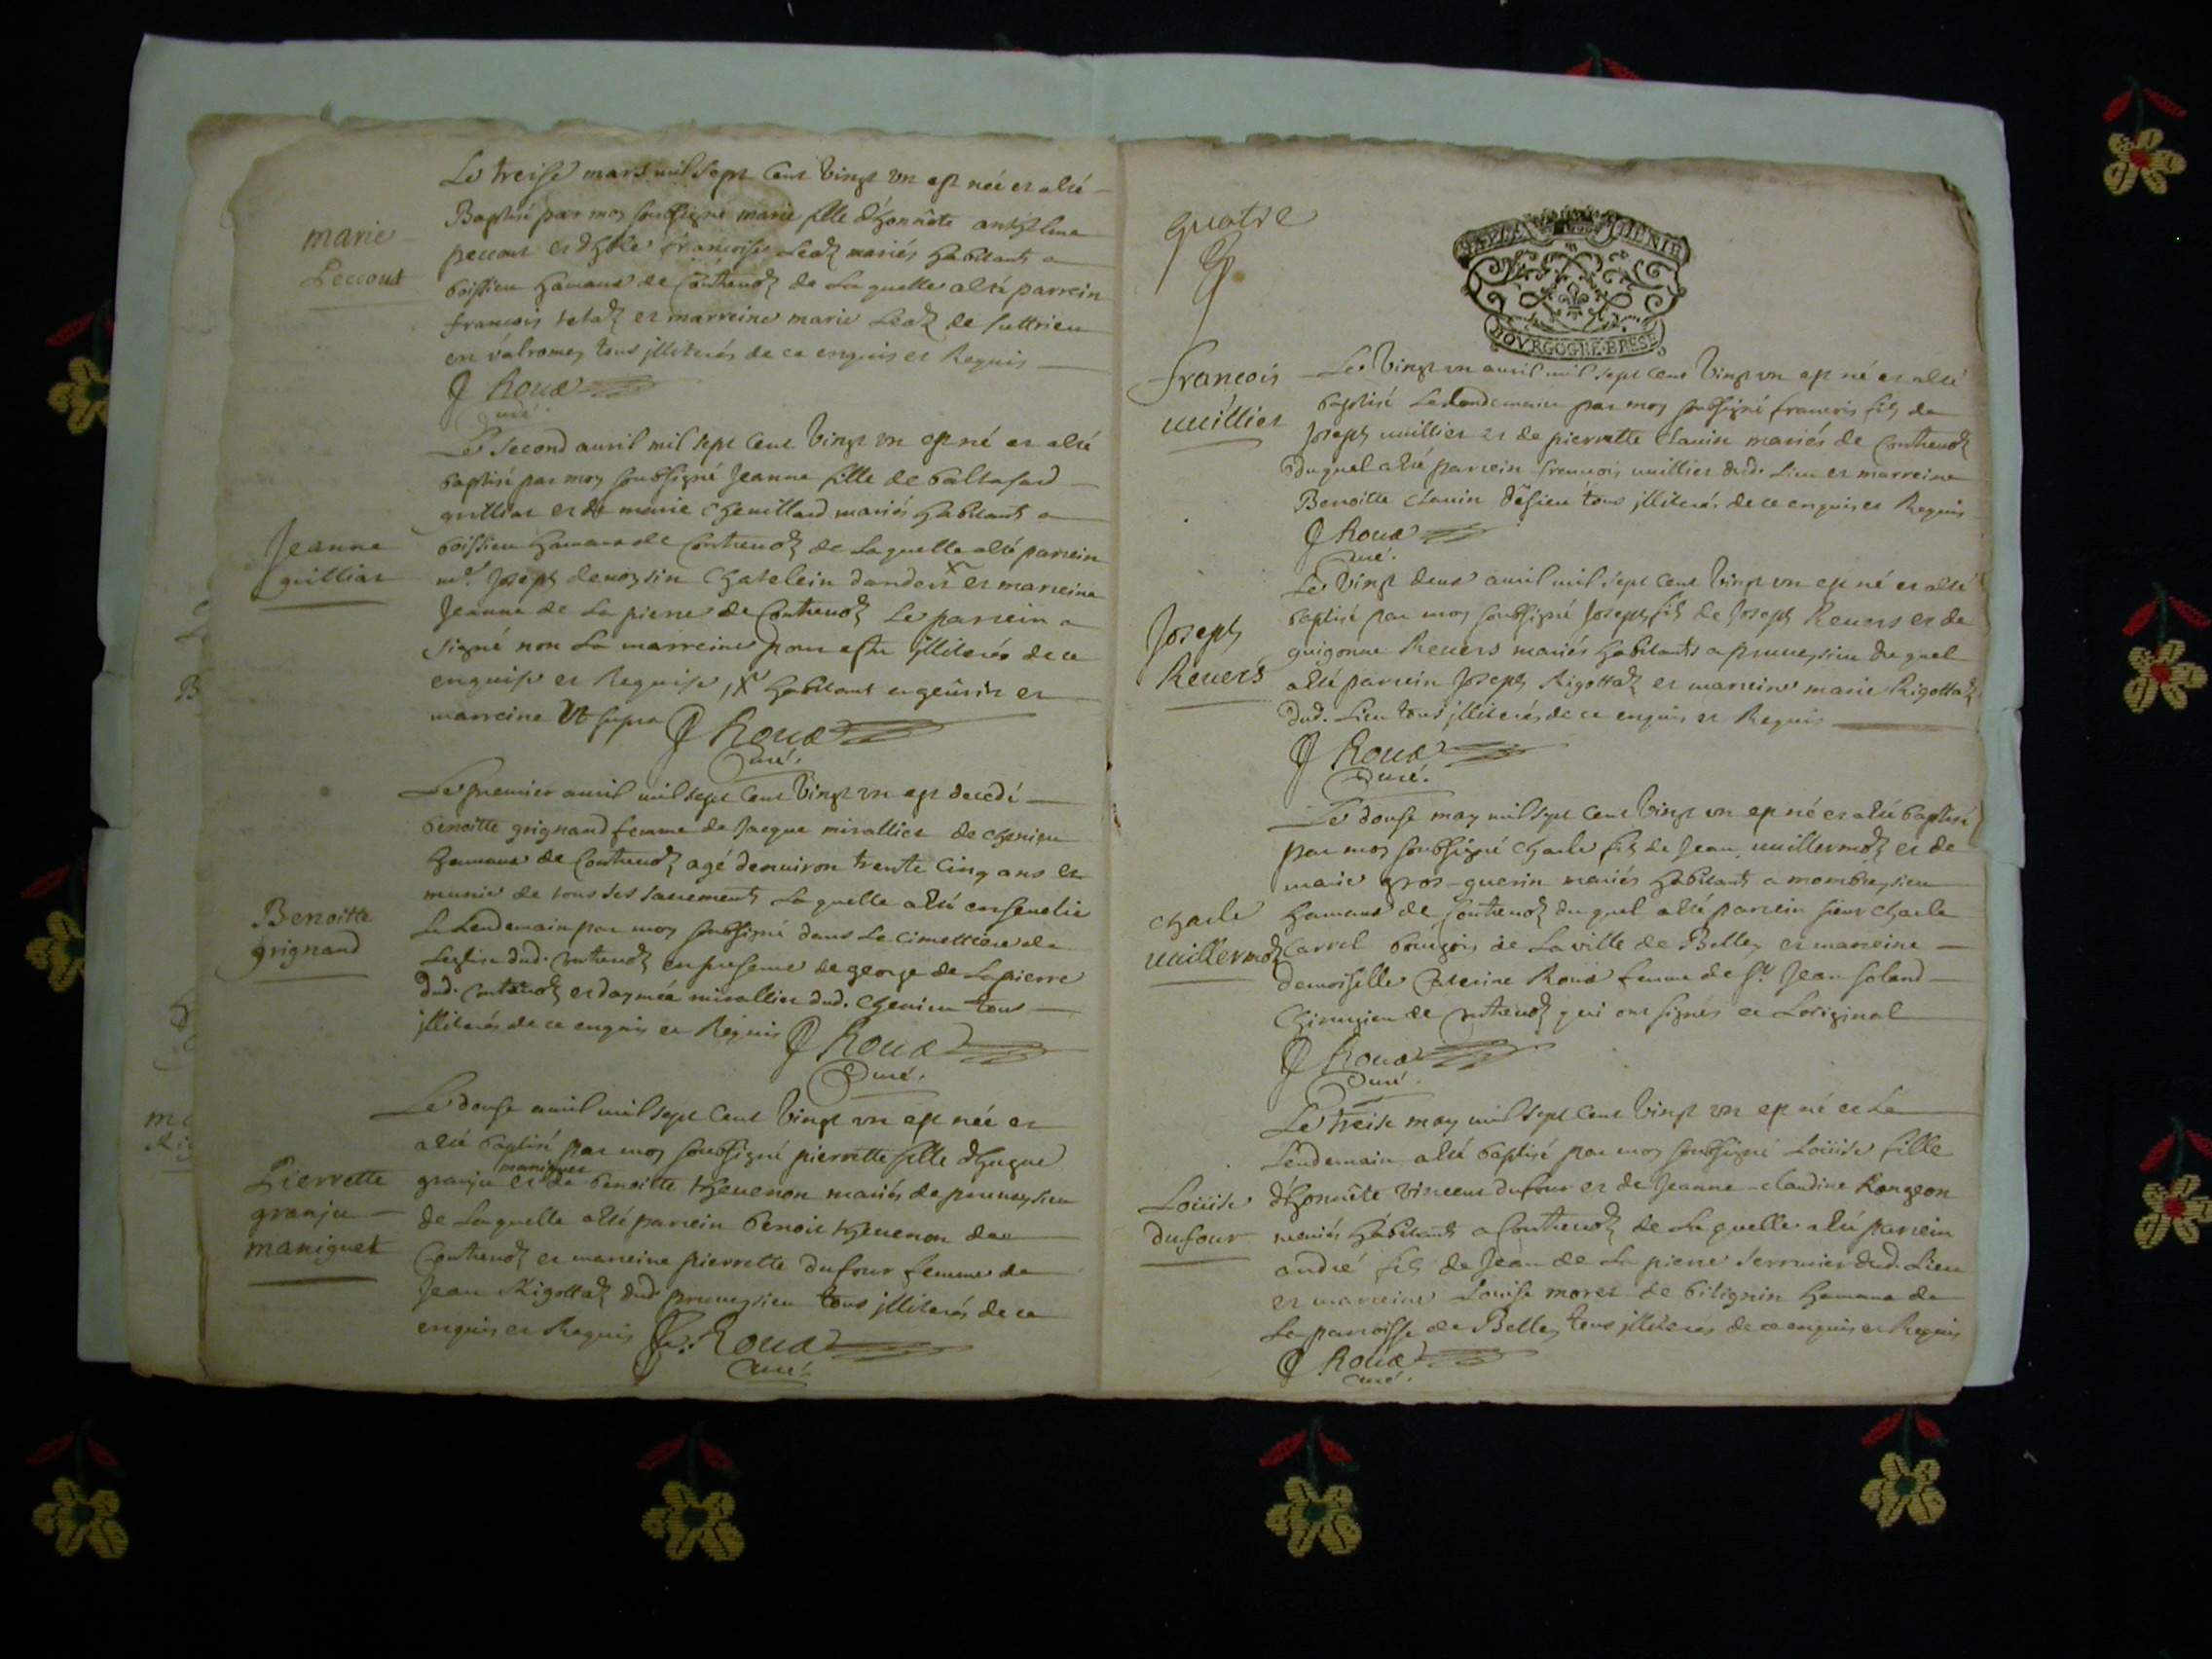 Le treise mars mil sept cent vingt vn est née et a eté
Baptisé par moy soubsigné marie fille d'honnête anthelme
peccout et d'hble francoise Leaz mariés habitants a
boissieu hameau de Contreuoz de Laquelle a eté parrein
francois tetaz et marreine marie Leaz de suttrieu
en valromey tous illiterés de ce enquis et Requis
marie
Peccout
J Roux
curé.
Le second auril mil sept cent vingt vn est né et a eté
baptisé par moy soubsigné Jeanne fille de baltasard
grilliat et de marie Cheuillard mariés habitants a
boissieu hameau de Contreuoz de Laquelle a eté parrein
mr. Joseph demoysin Chatelein dandert X et marreine
Jeanne de La pierre de Contreuoz Le parrein a
signé non La marreine pour estre illiterée de ce
enquise et Requise, X habitant en geûrin et
marreine Vt supra J Roux
curé.
Jeanne
grilliat
Le premier auril mil sept cent vingt vn est decedé
benoitte grignand femme de Jacque mirallier de chenieu
hameau de Contreuoz agé denuiron trente cinq ans et
munie de tous ses sacrements Laquelle a eté enseuelie
Le Lendemain par moy soubsigné dans Le cimettiere de
Leglise dud. Contreuoz en presence de george de La pierre
dud. Contreuoz et daymée mirallier dud. Chenieu tous
illiterés de ce enquis et Requis J Roux
Curé.
Benoitte
grignand
Le douse auril mil sept cent vingt vn est née et
a eté baptisé par moy soubsigné pierrette fille d'hugue
maniguet
granju et de benoitte theuenon mariés de pruneysieu
de Laquelle a eté parrein benoit theuenon de
Contreuoz et marreine pierrette dufour femme de
Jean Rigottaz dud. pruneysieu tous illiterés de ce
enquis et Requis J. Roux
curé.
Pierrette
granju
maniguet
quatre
BOVRGOGNE·BRESE
francois
uuillier
Le vingt vn auril mil sept cent vingt vn est né et a eté
baptisé Le Lendemain par moy soubsigné francois fils de
Joseph uuillier et de pierrette Clauin mariés de Contreuoz
duquel a eté parrein francois uuillier dud. Lieu et marreine
Benoitte Clauin tous illiterés de ce enquis et Requis
J Roux
curé.
Le vingt deux auril mil sept cent vingt vn est né et a eté
baptisé par moy soubsigné Joseph fils de Joseph Reuers et de
guigonne Reuers mariés habitants a pruneysieu duquel
a eté parrein Joseph Rigottaz et marreine marie Rigottaz
dud. Lieu tous illiterés de ce enquis et Requis
J Roux
Curé.
Joseph
Reuers
Le douse may mil sept cent vingt vn est né et a eté baptisé
par moy soubsigné charle fils de Jean uuillermoz et de
marie gros-guerin mariés habitants a mombreysieu
hameau de Contreuoz duquel a eté parrein sieur charle
Carrel bourgois de La ville de Belley et marreine
demoiselle Caterine Roux femme de sr. Jean soland
Chirurgien de Contreuoz qui ont signés a Loriginal
J Roux
Curé.
charle
uuillermoz
Le treise may mil sept cent vingt vn est né et Le
Lendemain a eté baptisé par moy soubsigné Loüise fille
d'honnête vincent dufour et de Jeanne-claudine Rongeon
mariés habitants a Contreuoz de Laquelle a eté parrein
andré fils de Jean de La pierre serrurier dud. Lieu
et marreine Louise moret de bitignin hameau de
La parroisse de Belley tous illiterés de ce enquis et Requis
J Roux
curé.
Loüise
dufour